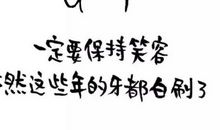 一定要保持笑容
然这些年的牙都白刷了